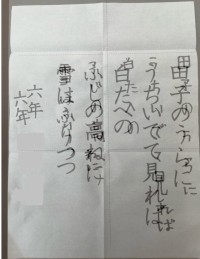 田子のうらに
うちいでて見れば
白たへの
ふじの高ねに
雪はふりつつ
六年
六年